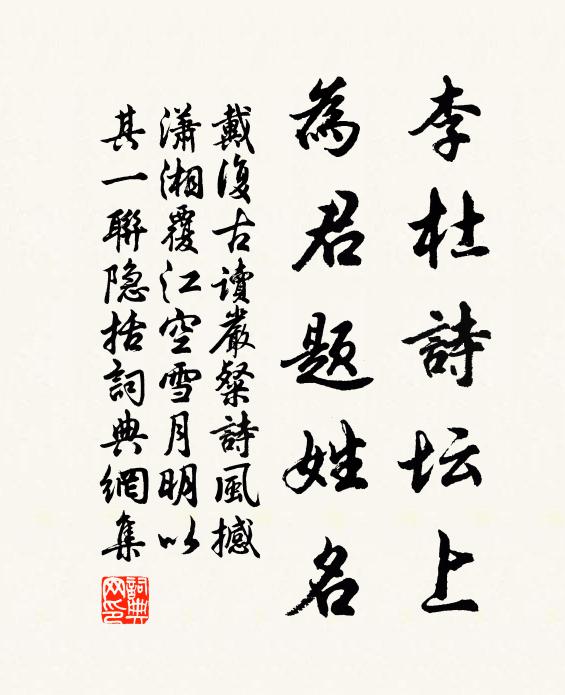 李杜詩坛上
為君题姓名
戴復古讀嚴粲詩風撼
瀟湘覆江空雪月明以
其一聯隐括詞典網集
詞典网印